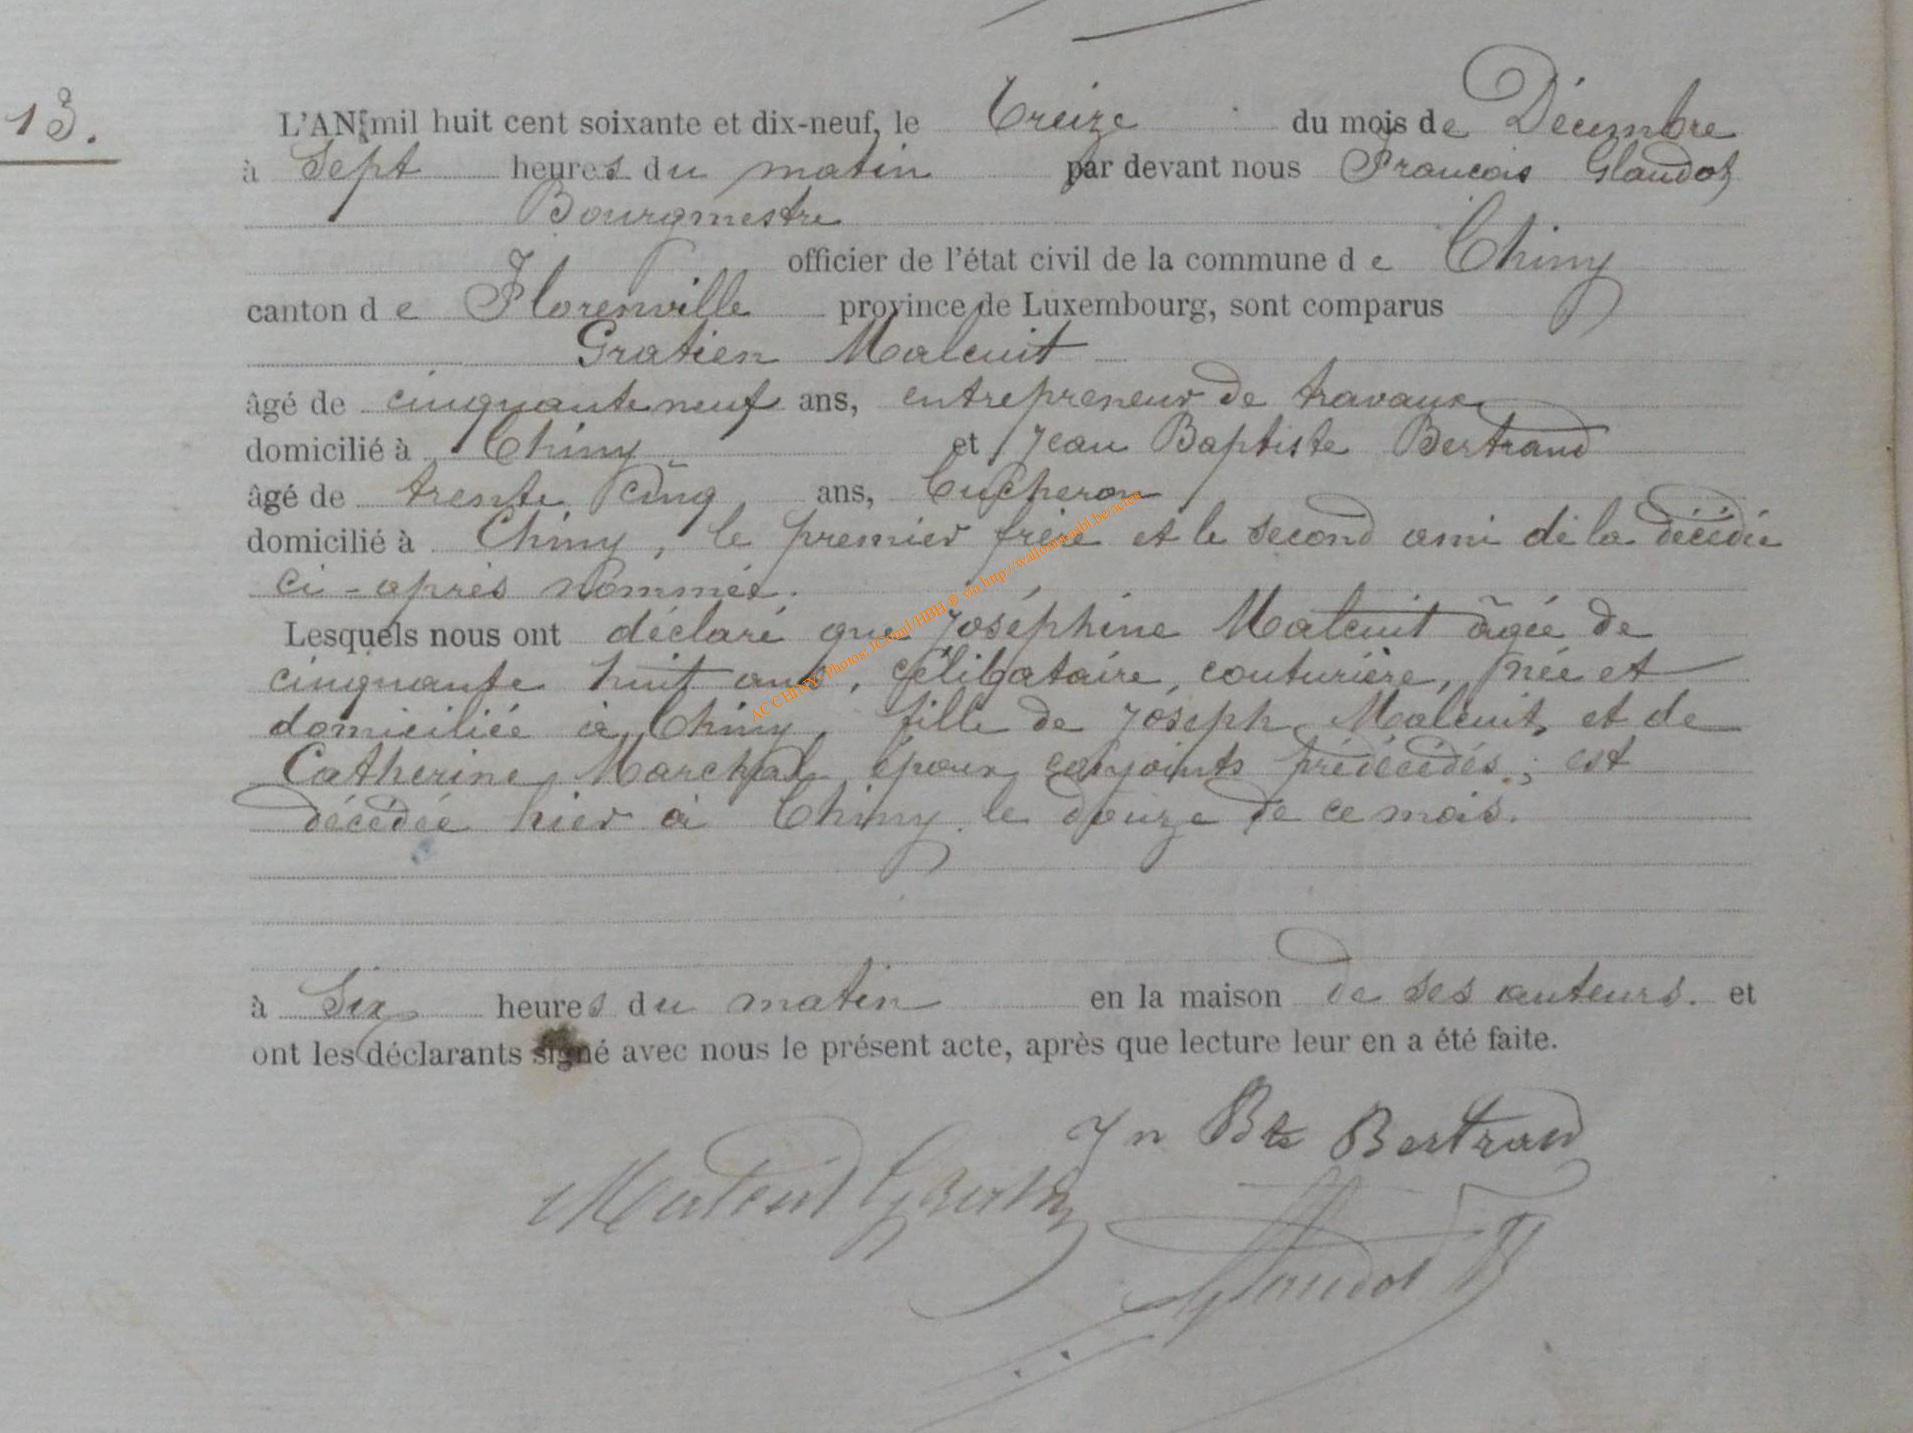 13.
L'AN mil huit cent soixante et dix-neuf, le Treize du mois de Décembre
à Sept heures du matin par devant nous François Glaudot
Bourgmestre
officier de l'état civil de la commune de Chiny
canton de Florenville province de Luxembourg, sont comparus
Gratien Maleuit
âgé de cinquante neuf ans, entrepreneur de travaux
domicilié à Chiny et Jean Baptiste Bertrand
âgé de trente cinq ans, Bucheron
domicilié à Chiny, le premier frère et le second ami de la décédée
ci-après nommée.
Lesquels nous ont déclaré que Joséphine Maleuit âgée de
cinquante huit ans, célibataire, couturière, née et
domiciliée à Chiny, fille de Joseph Maleuit, et de
Catherine Marchal, époux conjoints prédécédés; est
décédée hier à Chiny le douze de ce mois.
à Six heures du matin en la maison de ses auteurs. et
ont les déclarants signé avec nous le présent acte, après que lecture leur en a été faite.
Jn Bte Bertrand
Glaudot F